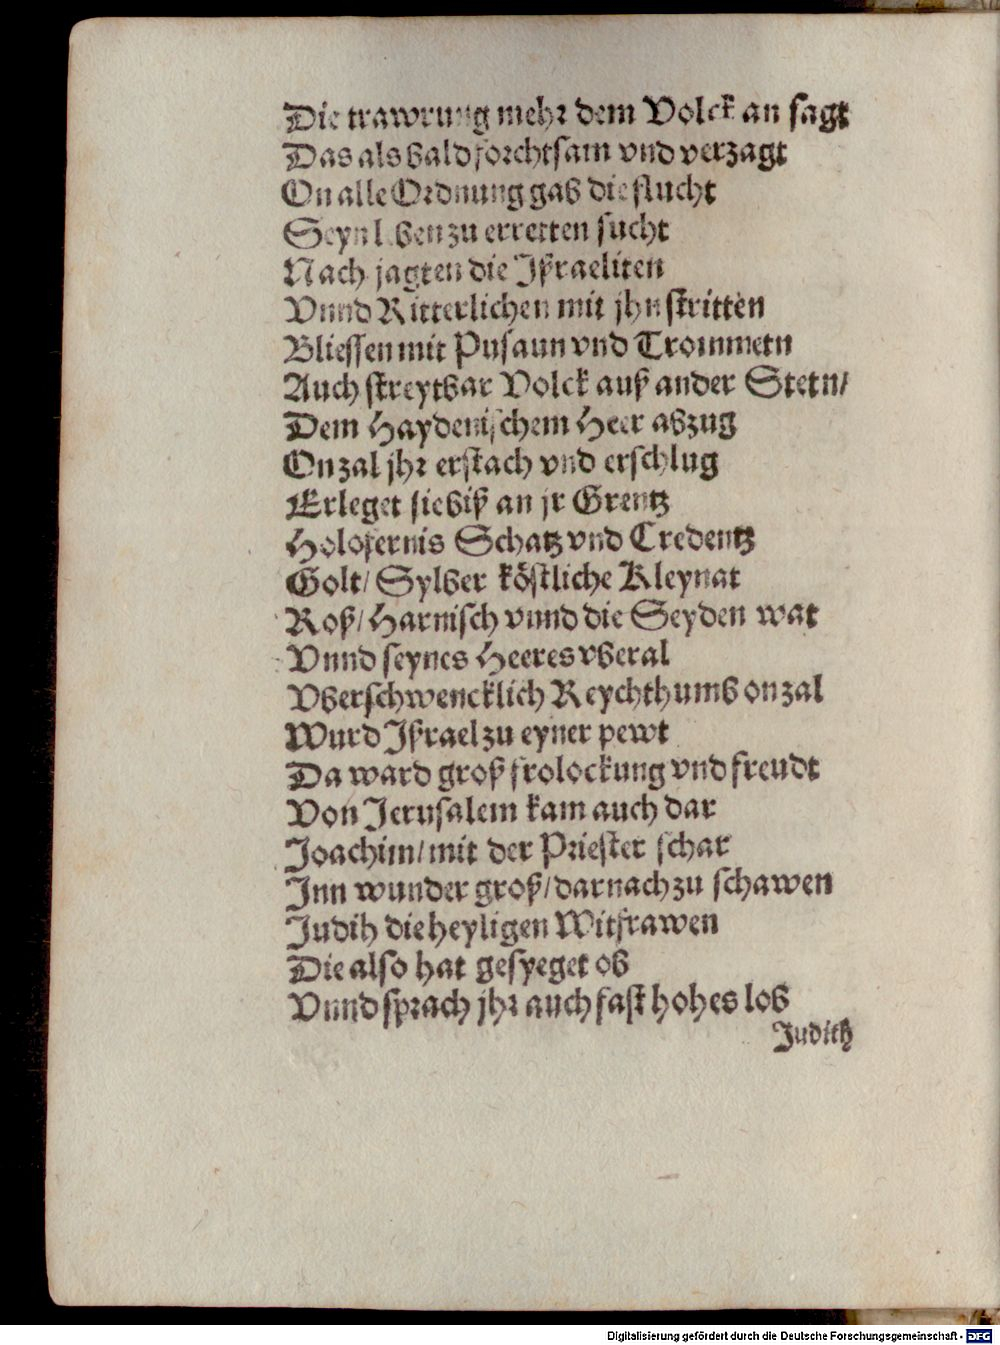 Die trawrung mehr dem Volck an sagt
Das als bald forchtsam vnd verzagt
On alle Ordnung gab die flucht
Seyn leben zu erretten sucht
Nach jagten die Jßraeliten
Vnnd Ritterlichen mit jhn stritten
Bliessen mit Pusaun vnd Trommetn
Auch streytbar Volck auß ander Stetn/
Dem Haydenischem Heer abzug
On zal jhr erstach vnd erschlug
Erleget sie biß an jr Grentz
Holofernis Schatz vnd Credentz
Golt/ Sylber köstliche Kleynat
Roß/ Harnisch vnnd die Seyden wat
Vnnd seynes Heeres vberal
Vberschwencklich Reychthumb onzal
Wurd Jßrael zu eyner pewt
Da ward groß frolockung vnd freudt
Von Jerusalem kam auch dar
Joachim/ mit der Priester schar
Inn wunder groß/ darnach zu schawen
Judih die heyligen Witfrawen
Die also hat gesyeget ob
Vnnd sprach jhr auch fast hohes lob
Judith
Digitalisierung gefördert durch die Deutsche Forschungsgemeinschaft - DFG